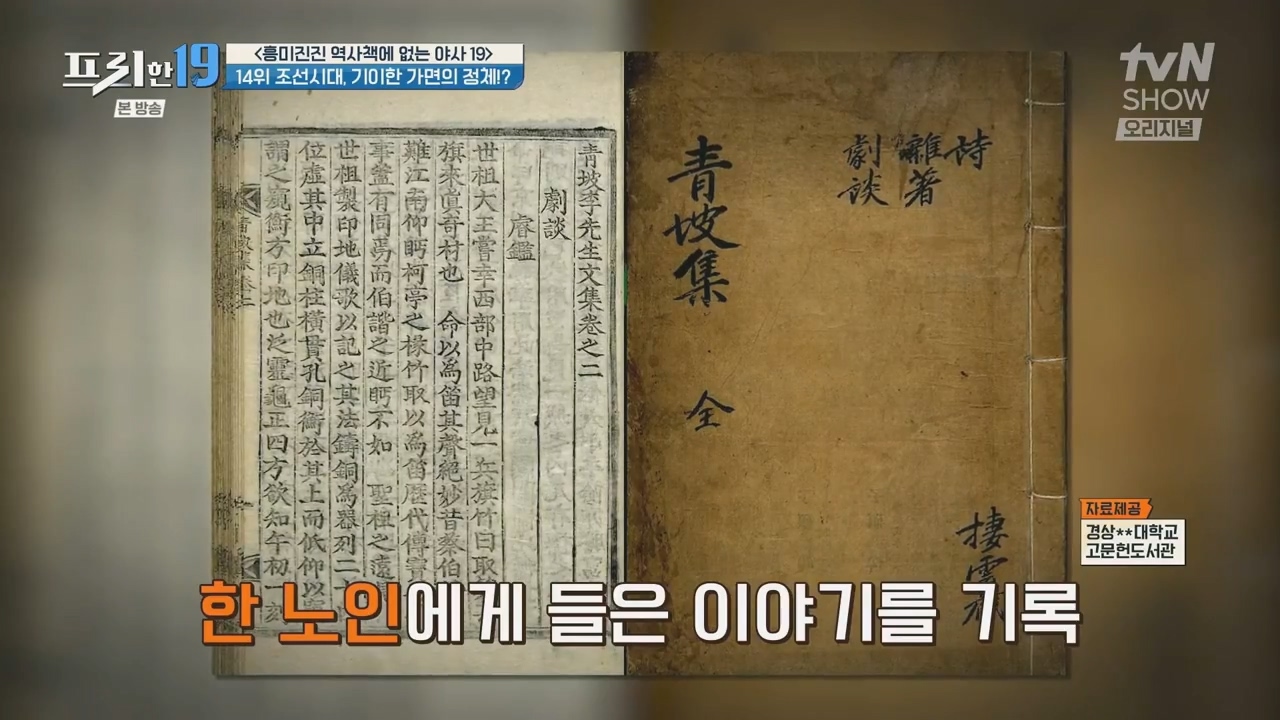 프리한19
본 방송
<흥미진진 역사책에 없는 야사 19>
14위 조선시대, 기이한 가면의 정체!?
tvN
SHOW
오리지널
詩
雜著
劇談
青坡集 全
棲雲
青坡李先生文集卷之二
劇談
睿鑑
世祖大王嘗幸西部中路望見一兵旗竹曰取
旗來眞奇材也 命以爲笛其聲絶妙昔蔡伯
難江南仰眄柯亭之椽竹取以爲笛歷代傳寶
事蓋有同焉而伯諧之近眄不如 聖祖之遠
世祖製印地儀歌以記之其法鑄銅爲器列二
位虛其中立銅柱橫貫孔銅衡於其上而低仰以
謂之窺衡方印地也泛靈龜正四方欲知午初一刻
자료제공
경상**대학교
고문헌도서관
한 노인에게 들은 이야기를 기록